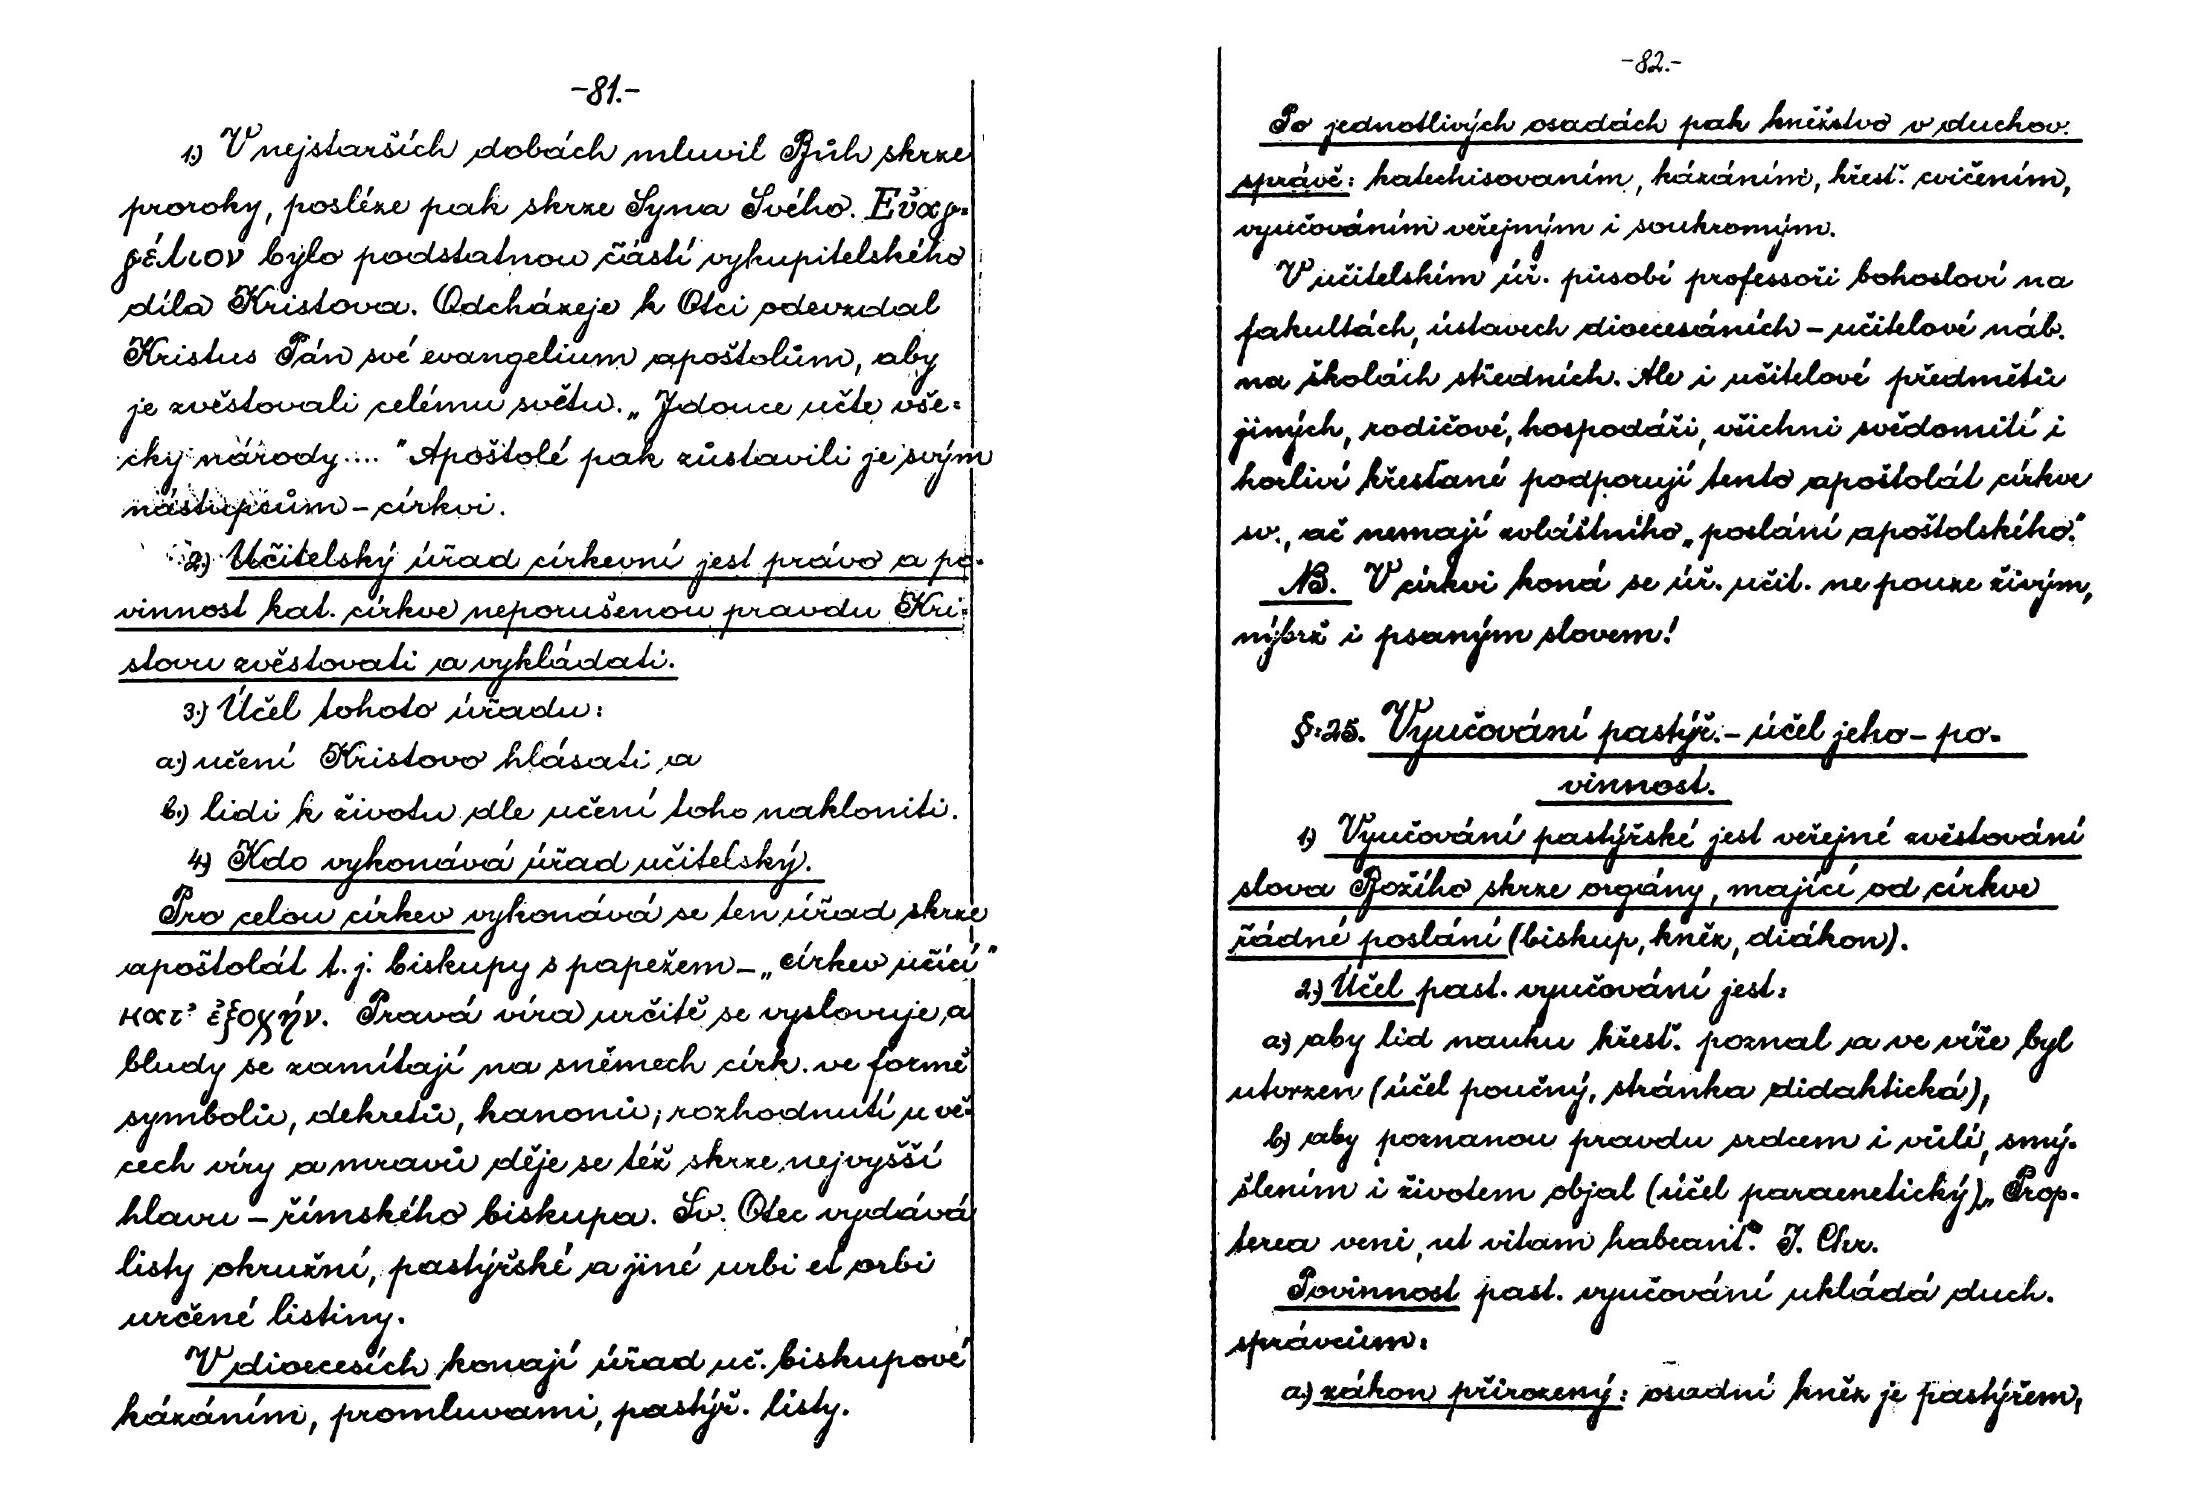 -81.-
1.) V nejstarších dobách mluvil Bůh skrze
proroky, posléze pak skrze Syna Svého. Εὐαγ=
γέλιον bylo podstatnou částí vykupitelského
díla Kristova. Odcházeje k Otci odevzdal
Kristus Pán své evangelium apoštolům, aby
je zvěstovali celému světu. „Jdouce učte vše=
cky národy...." Apoštolé pak zůstavili je svým
nástupcům – církvi.
2.) Učitelský úřad církevní jest právo a po-
vinnost kat. církve neporušenou pravdu Kri-
stovu zvěstovati a vykládati.
3.) Účel tohoto úřadu:
a.) učení Kristovo hlásati a
b.) lidi k životu dle učení toho nakloniti.
4.) Kdo vykonává úřad učitelský.
Pro celou církev vykonává se ten úřad skrze
apoštolát t. j. biskupy s papežem – „církev učící"
κατ' ἐξοχήν. Pravá víra určitě se vyslovuje a
bludy se zamítají na sněmech círk. ve formě
symbolů, dekretů, kanonů; rozhodnutí u vě-
cech víry a mravů děje se též skrze nejvyšší
hlavu – římského biskupa. Sv. Otec vydává
listy okružní, pastýřské a jiné urbi et orbi
určené listiny.
V dioecesích konají úřad uč. biskupové
kázáním, promluvami, pastýř. listy.
-82.-
Po jednotlivých osadách pak kněžstvo v duchov.
správě: katechisovaním, kázáním, křesť. cvičením,
vyučováním veřejným i soukromým.
V učitelském úř. působí professoři bohosloví na
fakultách, ústavech dioecesáních – učitelové náb.
na školách středních. Ale i učitelové předmětů
jiných, rodičové, hospodáři, všichni svědomití i
horliví křesťané podporují tento apoštolát církve
sv., ač nemají zvláštního „poslání apoštolského."
NB. V církvi koná se úř. učit. ne pouze živým,
nýbrž i psaným slovem!
§:25. Vyučování pastýř. – účel jeho – po-
vinnost.
1.) Vyučování pastýřské jest veřejné zvěstování
slova Božího skrze orgány, mající od církve
řádné poslání (biskup, kněz, diákon).
2.) Účel past. vyučování jest:
a.) aby lid nauku křesť. poznal a ve víře byl
utvrzen (účel poučný, stránka didaktická),
b.) aby poznanou pravdu srdcem i vůlí, smý-
šlením i životem objal (účel paraenetický). „Prop-
terea veni, ut vitam habeant." J. Chr.
Povinnost past. vyučování ukládá duch.
správcům:
a.) zákon přirozený: osadní kněz je pastýřem,